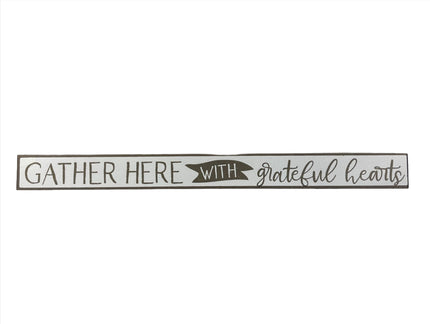 GATHER HERE WITH grateful hearts